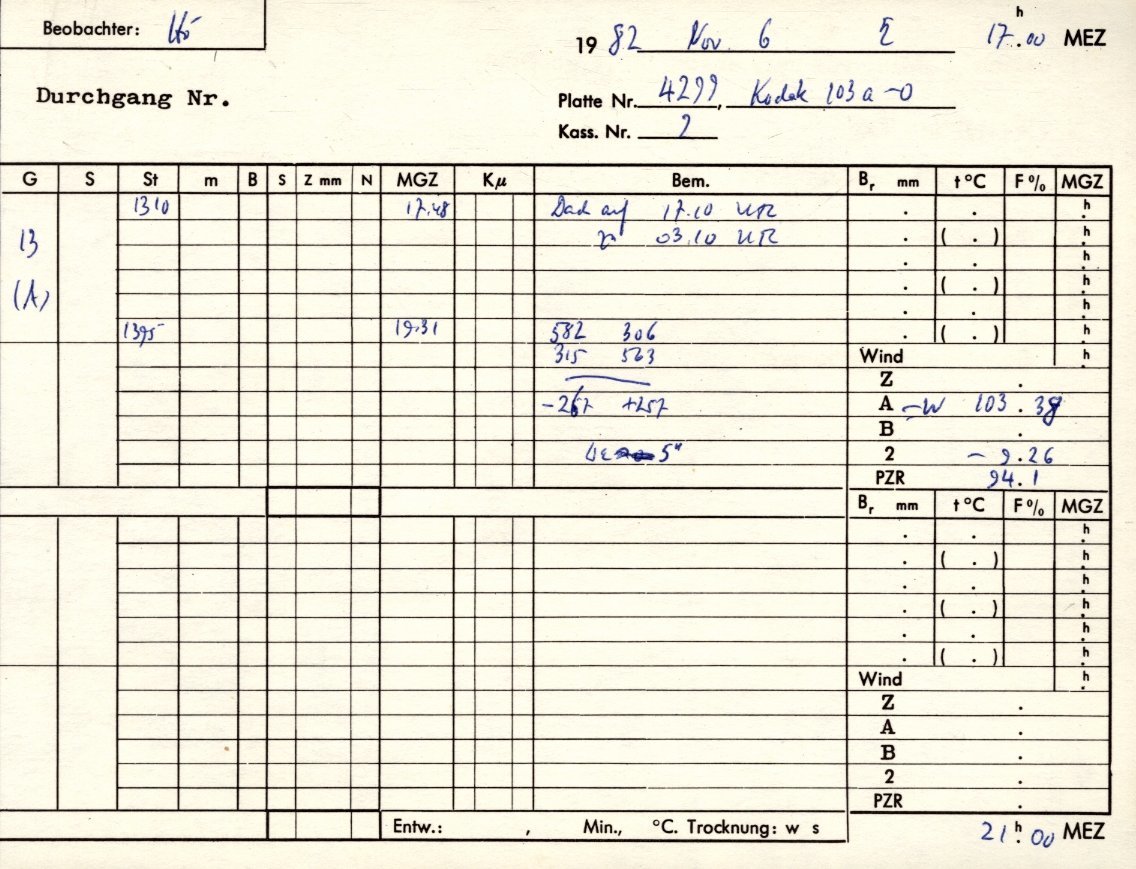 Beobachter: Hö
19 82 Nov. 6 17.00 h MEZ
Durchgang Nr.
Platte Nr. 4299, Kodak 103 a-O
Kass. Nr. 2
G S St m B S Z mm N MGZ Kμ Bem. Br mm t °C F % MGZ
1310 17.48 Dach auf 17.10 . . h
13 03.10 . ( . ) h
. . h
(A) . ( . ) h
. . h
1395 19.31 582 306 . ( . ) h
315 563 Wind h
Z .
-267 +257 A -W 103.38
B .
5" 2 - 9.26
PZR 94.1
Br mm t °C F % MGZ
. . h
. ( . ) h
. . h
. ( . ) h
. . h
. ( . ) h
Wind h
Z .
A .
B .
2 .
PZR .
Entw.: , Min., °C. Trocknung: w s
21 h 00 MEZ